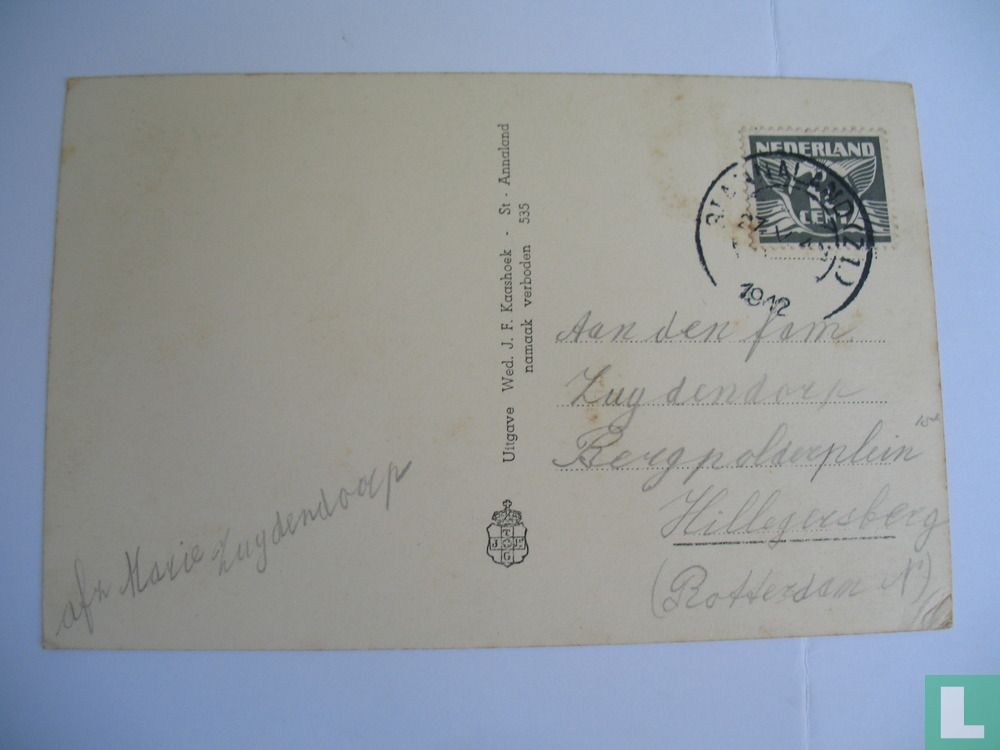 NEDERLAND
CENT
1942
Aan den fam.
Zuydendorp
Bergpolderplein
Hillegersberg
(Rotterdam N)
Uitgave Wed. J. F. Kaashoek - St. Annaland
namaak verboden 535
afz Marie Zuydendorp
L